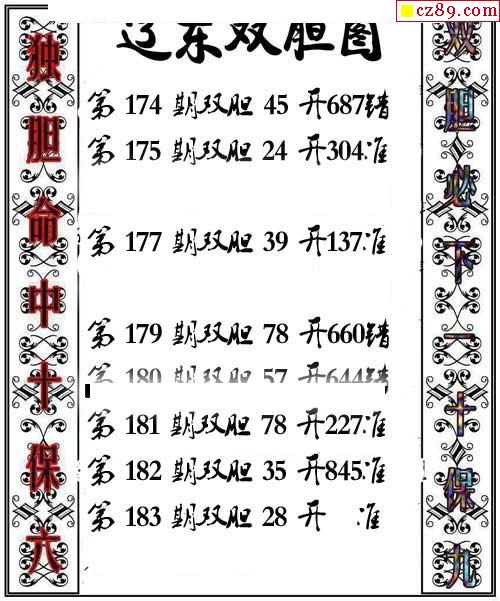 cz89.com
辽东双胆图
独胆命中十保六
双胆必下一十保九
第 174 期双胆 45 开687错
第 175 期双胆 24 开304准
第 177 期双胆 39 开137准
第 179 期双胆 78 开660错
第 180 期双胆 57 开644错
第 181 期双胆 78 开227准
第 182 期双胆 35 开845准
第 183 期双胆 28 开 准